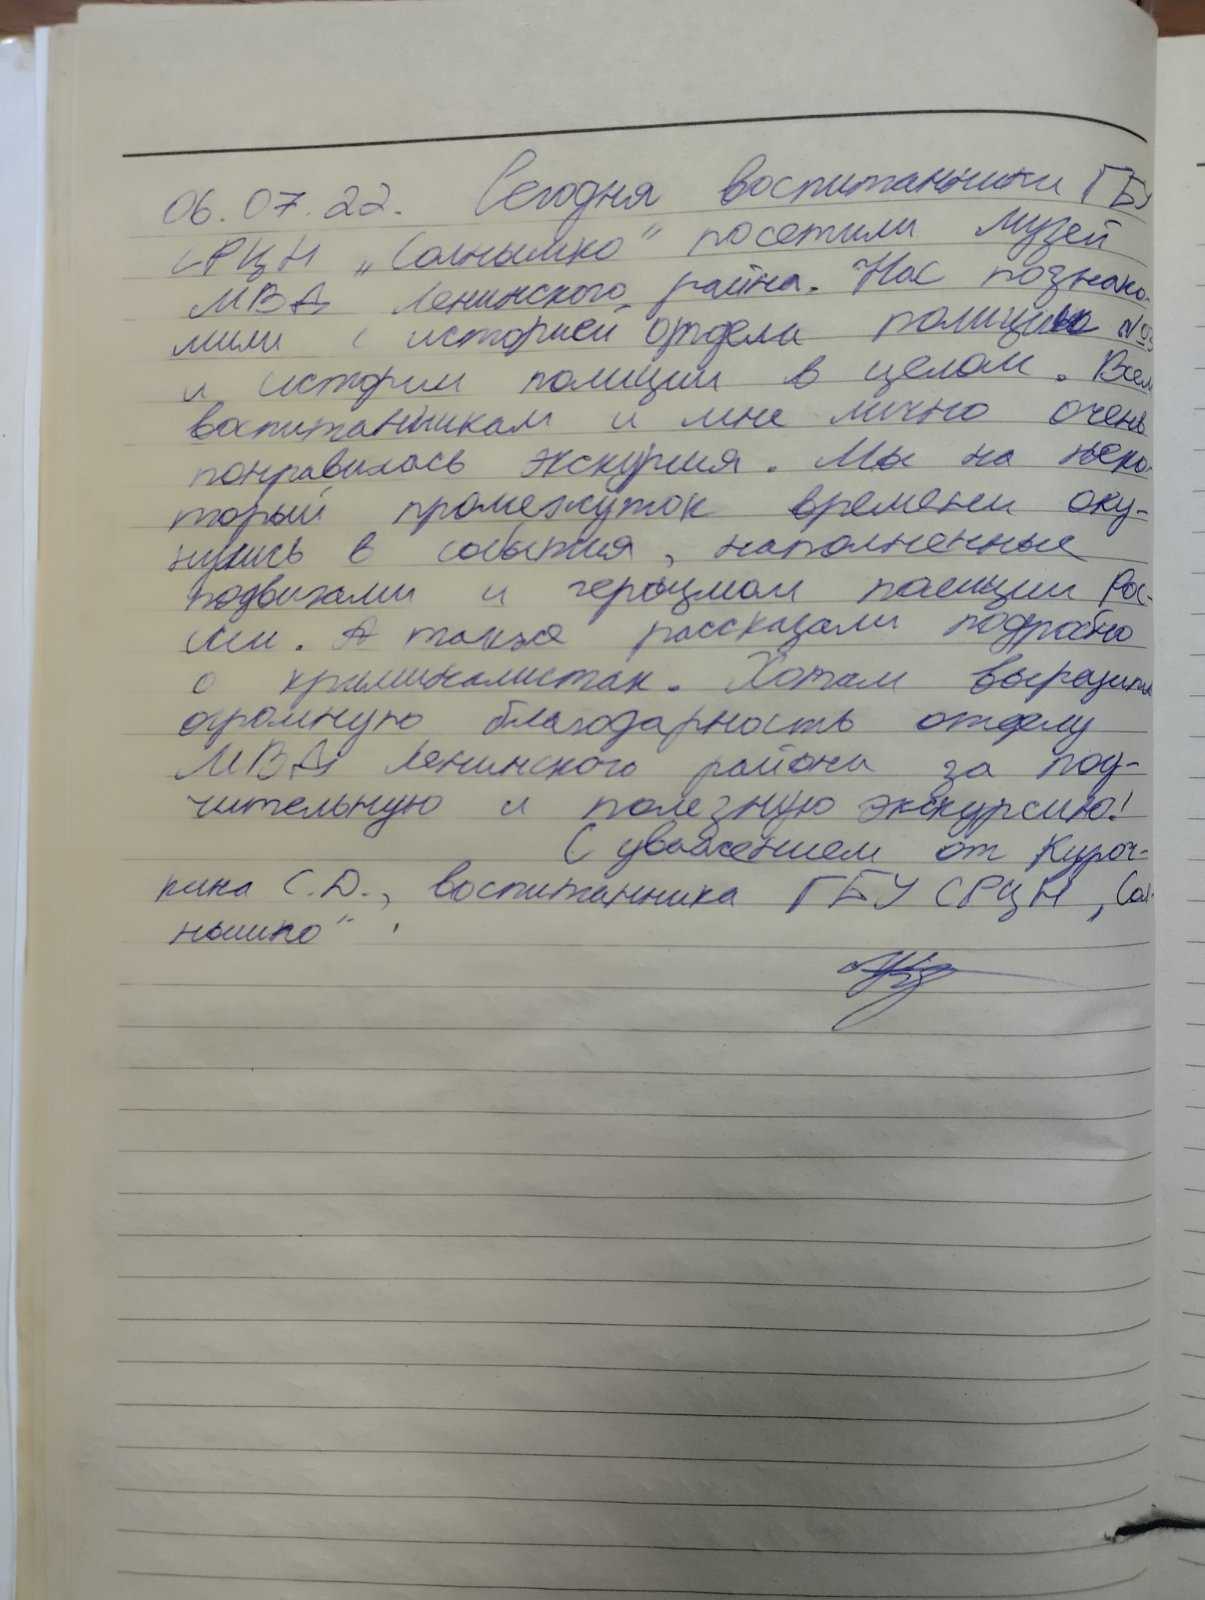 06.07.22. Сегодня воспитанники ГБУ
СРЦН „Солнышко" посетили музей
МВД Ленинского района. Нас познако-
мили с историей отдела полиции
и истории полиции в целом. Всем
воспитанникам и мне лично очень
понравилась экскурсия. Мы на неко-
торый промежуток времени оку-
нулись в события, наполненные
подвигами и героизмом полиции Рос-
сии. А также рассказали подробно
о криминалистах. Хотим выразить
огромную благодарность отделу
МВД Ленинского района за поу-
чительную и полезную экскурсию!
С уважением от Куроч-
кина С.Д., воспитанника ГБУ СРЦН „Сол-
нышко".